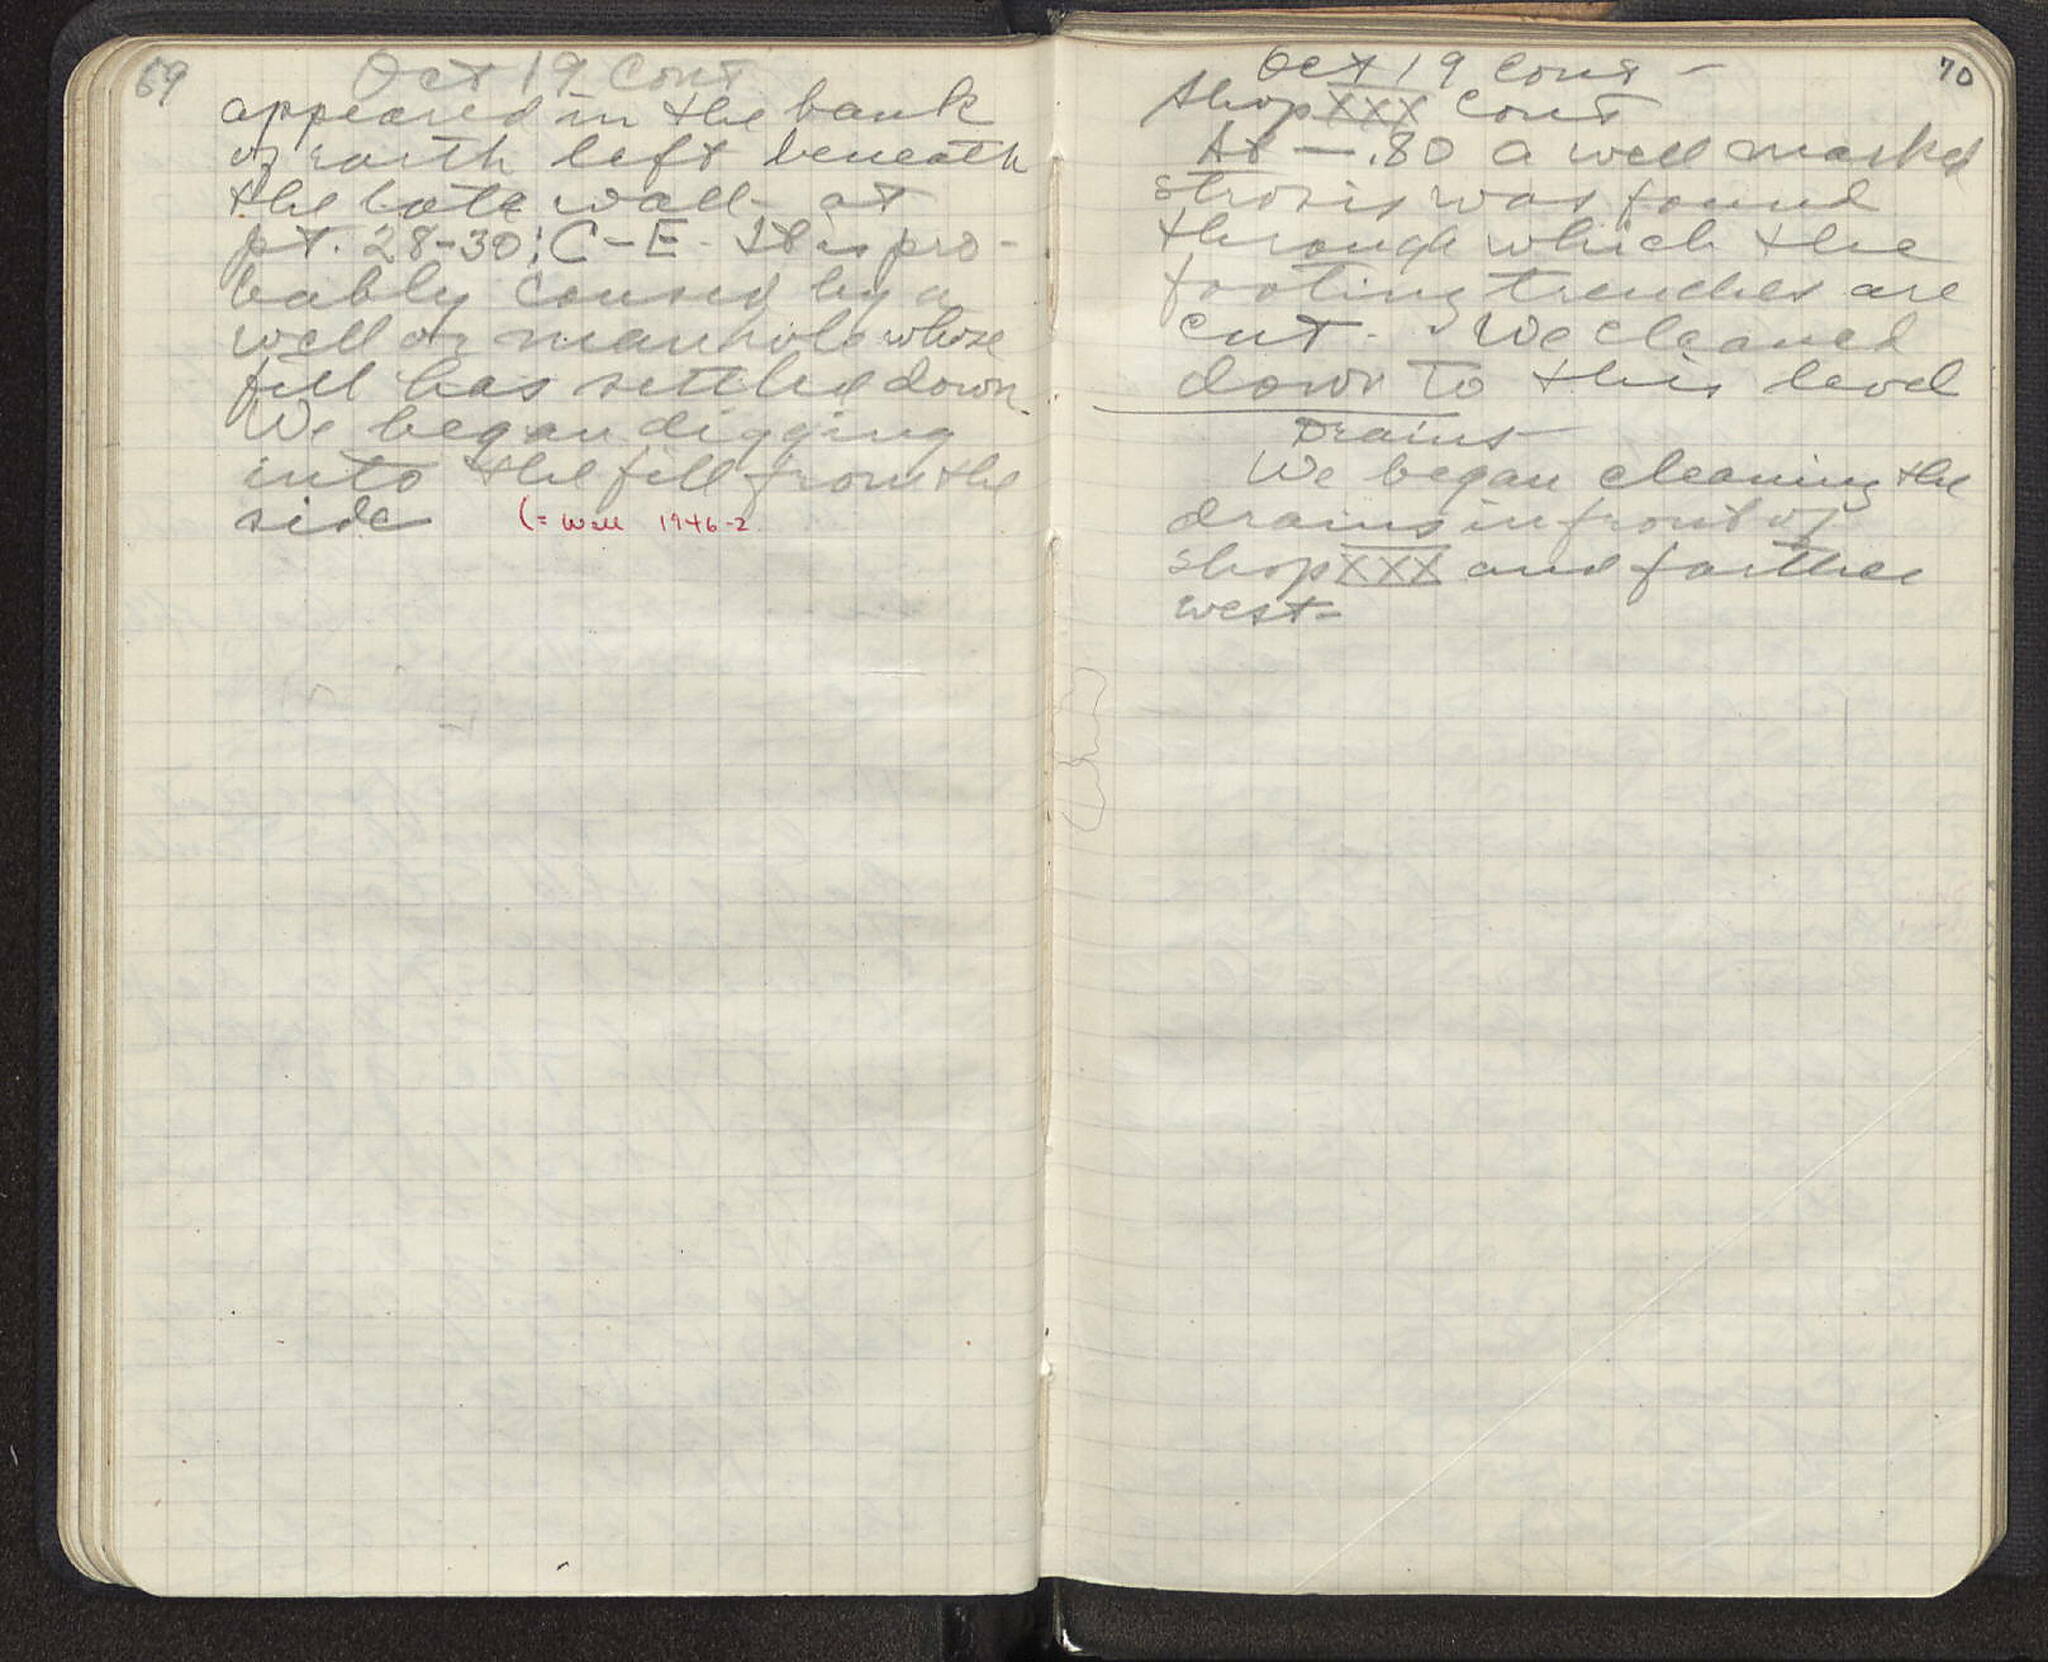 69
Oct 19 Cont
appeared in the bank
of earth left beneath
the late wall - at
pt. 28-30; C-E. It is pro-
bably caused by a
well or manhole whose
fill has settled down.
We began digging
into the fill from the
side (= Well 1946-2
70
Oct 19 Cont -
Shop XXX Cont
At -.80 a well marked
strosis was found
through which the
footing trenches are
cut. We cleaned
down to this level
Drains
We began cleaning the
drains in front of
shop XXX and farther
west-